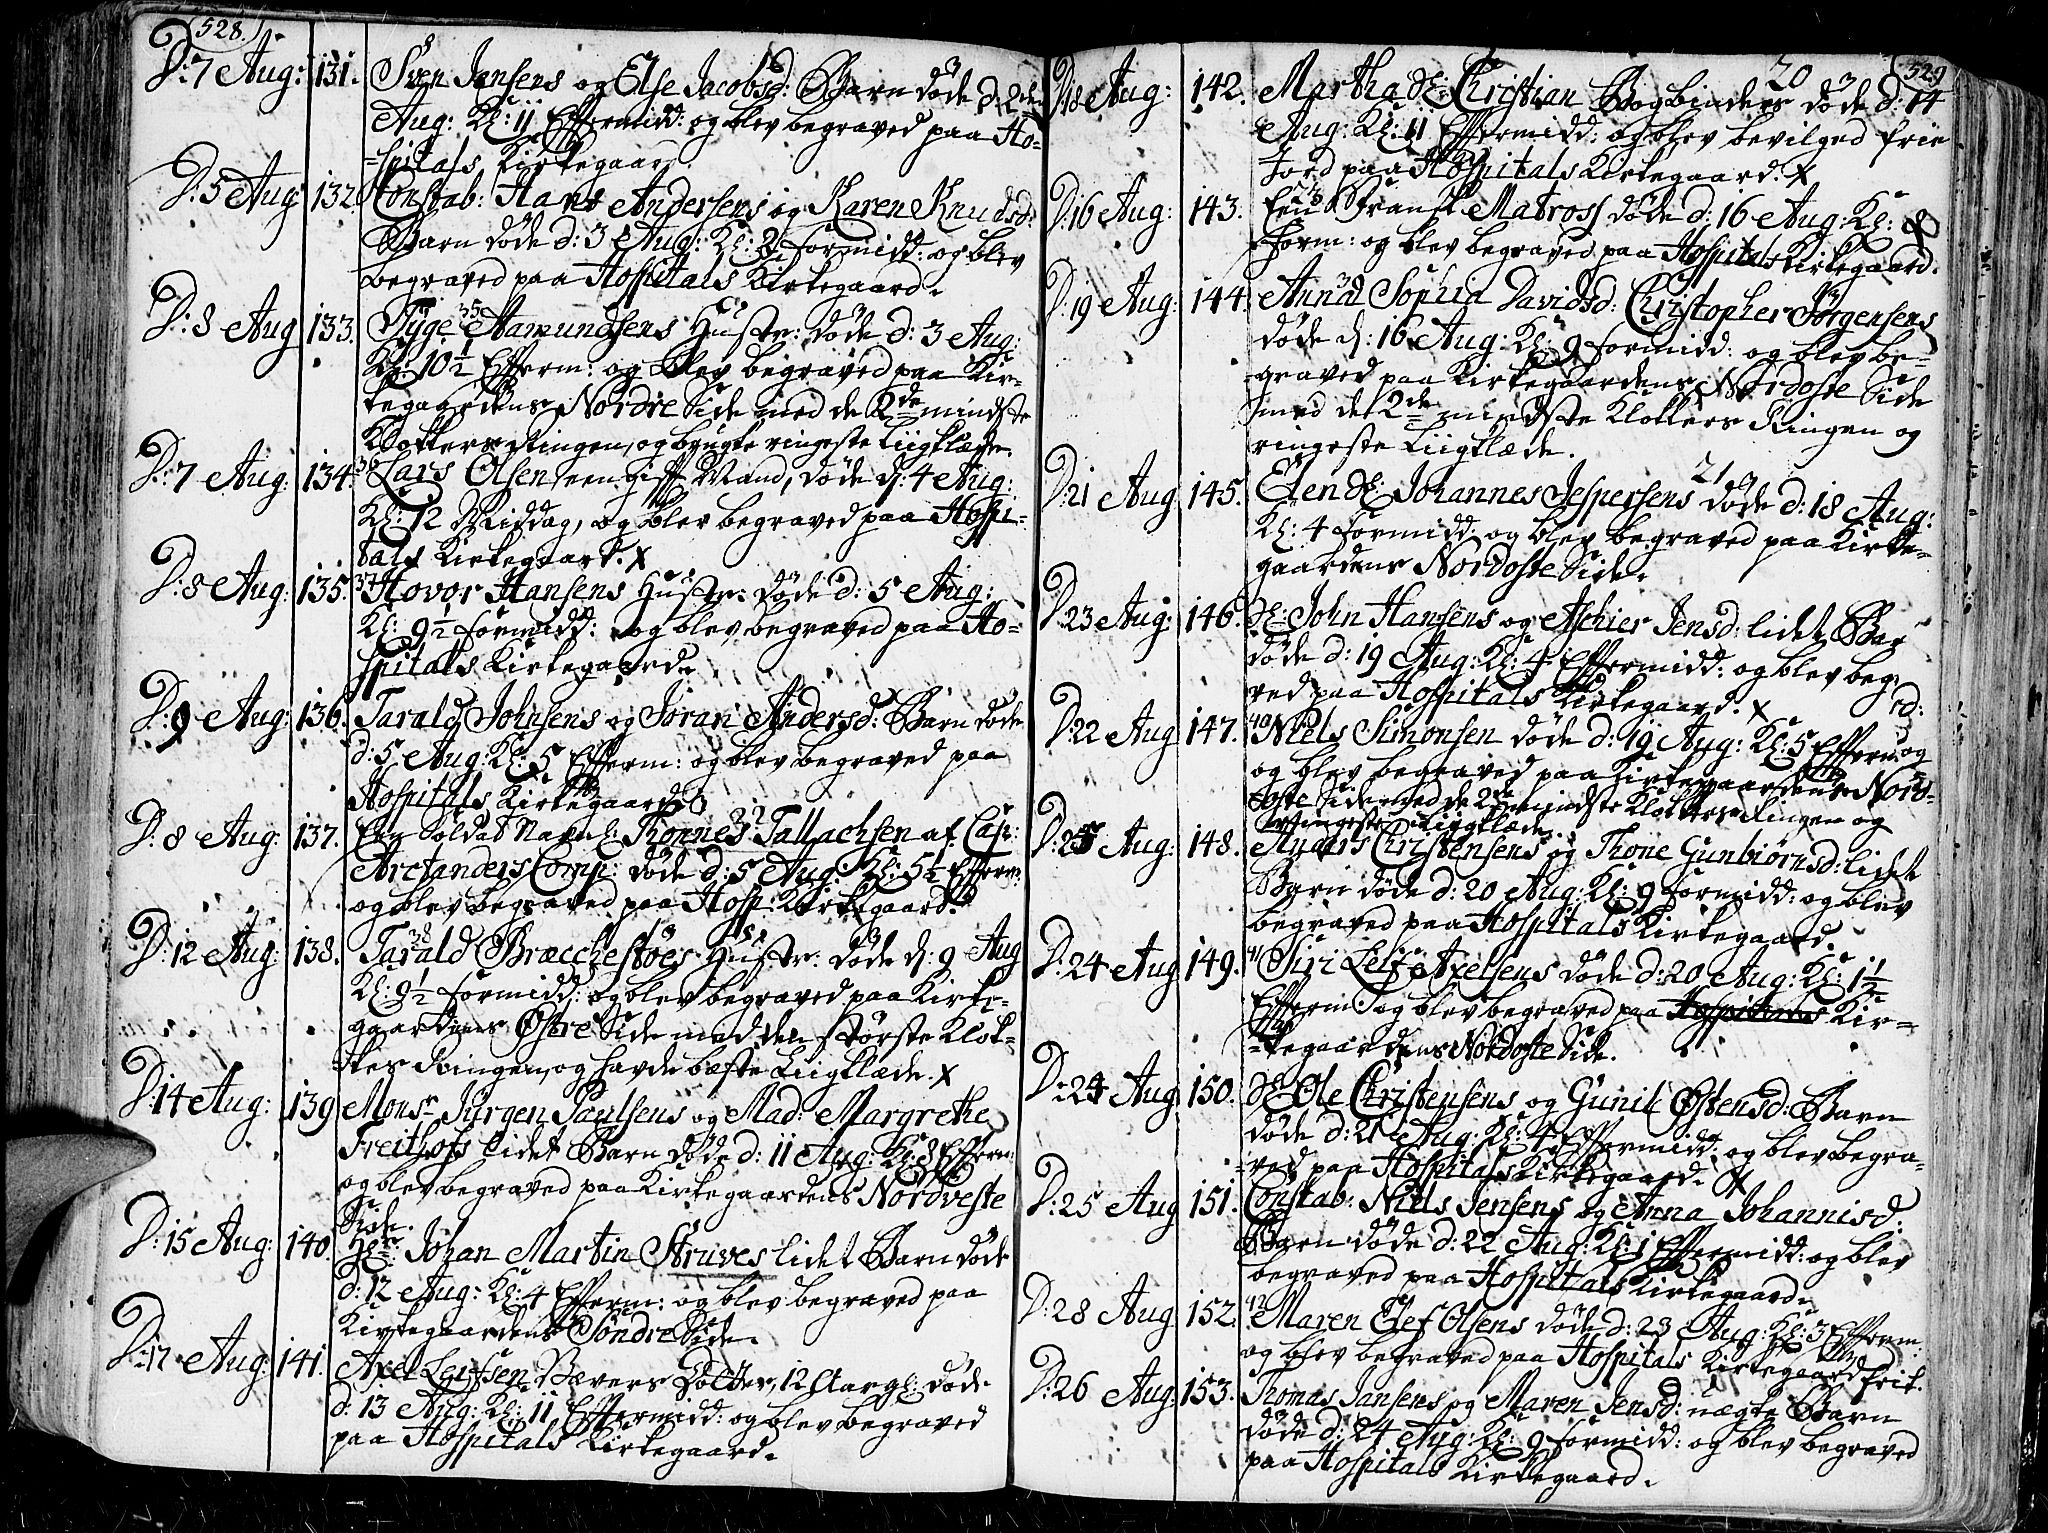 528.
D: 7 Aug: 131. Sven Jansens og Else Jacobsd: Barn døde d: 2den
Aug: Kl: 11 Efftermidd: og blev begraved paa Ho-
spitals Kirkegaard.
D: 5 Aug 132. Constab: Hans Andersens og Karen Knudsd:
Barn døde d: 3 Aug: Kl: 2 formidd: og blev
begraved paa Hospitals Kirkegaard.
D: 8 Aug 133. Tyge Aamundsens Hustr: døde d: 3 Aug:
Kl: 10½ Effterm: og blev begraved paa Kir-
kegaardens Nordre Side med de 2de mindste
Klokkers Ringen, og brugte ringeste Liigklæde.
D: 7 Aug: 134. Lars Olsen een gift Mand, døde d: 4 Aug:
Kl: 12 Middag, og blev begraved paa Hospi-
tals Kirkegaard. x
D: 8 Aug: 135. 37 Hovor Hansens Hustr: døde d: 5 Aug:
Kl: 9½ formidd: og blev begraved paa Ho-
spitals Kirkegaard.
D: 9 Aug: 136. Tarald Johnsens og Joran Andersd: Barn døde
d: 5 Aug: Kl: 5 Effterm: og blev begraved paa
Hospitals Kirkegaard
D: 8 Aug: 137. Een Soldat Navnl: Thonnes Tallachsen af Cap:
Arctanders Comp: døde d: 5 Aug: Kl: 5½ Effterm:
og blev begraved paa Hosp: Kirkegaard.
D: 12 Aug: 138. Tarald Brecchestøes Hustr: døde d: 9 Aug
Kl: 9½ formidd: og blev begraved paa Kirke-
gaardens Østre Side med den største Klok-
kes Ringen, og havde beste Liigklæde. x
D: 14 Aug: 139 Monsr Jürgen Paulsens og Mad: Margrethe
Freithofs lidet Barn døde d: 11 Aug: Kl: 8 Effterm:
og blev begraved paa Kirkegaardens Nordveste
Side.
D: 15 Aug: 140. Hr: Johan Martin Struves lidet Barn døde
d: 12 Aug: Kl: 4 Effterm: og blev begraved paa
Kirkegaardens Søndre Side.
D: 17 Aug: 141. Axel Leufsen Bævers Dotter, 12 Aar gl: døde
d: 13 Aug: Kl: 11 Efftermidd: og blev begraved
paa Hospitals Kirkegaard.
529
D: 18 Aug: 142. Martha Christian Bogbinders døde d: 14
Aug: Kl: 11 Efftermidd: og blev bevilged frie
Jord paa Hospitals Kirkegaard. x
D: 16 Aug: 143. Een Fransk Matross døde d: 16 Aug: Kl: 8
form: og blev begraved paa Hospitals Kirkegaard.
D: 19 Aug: 144. Anna Sophia Davidsd: Christopher Jørgensens
døde d: 16 Aug: Kl: 9 formidd: og blev be-
graved paa Kirkegaardens Nordoste Side
med de 2de mindste Klokkers Ringen og
ringeste Liigklæde.
D: 21 Aug 145. Elen Johannes Jespersens døde d: 18 Aug:
Kl: 4 formidd. og blev begraved paa Kirke-
gaardens Nordoste Side.
D: 23 Aug: 146. John Hansens og Aschier Jensd: lidet Bar
døde d: 19 Aug: Kl: 4 Efftermidd: og blev beg
ved paa Hospitals Kirkegaard. x
D: 22 Aug 147. 40 Niels Simonsen døde d: 19 Aug: Kl: 5 Effterm: og
og blev begraved paa Kirkegaardens Nord-
oste Side med de 2de mindste Klokkers Ringen og
ringeste Liigklæde.
D: 25 Aug: 148. Anders Christensens og Thone Gunbiørnsd: lidet
Barn døde d: 20 Aug: Kl: 9 formidd: og blev
begraved paa Hospitals Kirkegaard.
D: 24 Aug 149. Siri Leif Axelsens døde d: 20 Aug: Kl: 1½
Effterm: og blev begraved paa Hospitals Kir-
kegaardens Nordoste Side.
D: 24 Aug 150. Ole Christensens og Gunil Østensd: Barn
døde d: 21 Aug: Kl: 4 Efftermidd: og blev begra-
ved paa Hospitals Kirkegaard. x
D: 25 Aug 151. Constab: Niels Jensens og Anna Johannisd:
Barn døde d: 22 Aug: Kl: 1 Efftermidd: og blev
begraved paa Hospitals Kirkegaard.
D: 28 Aug 152. Maren Elef Olsens døde d: 23 Aug: Kl: 3 Effterm:
og blev begraved paa Hospitals Kirkegaard frit.
D: 26 Aug: 153. Thomas Jansens og Maren Jensd: uægte Barn
døde d: 24 Aug: Kl: 9 formidd: og blev begraved
paa Hospitals Kirkegaard.